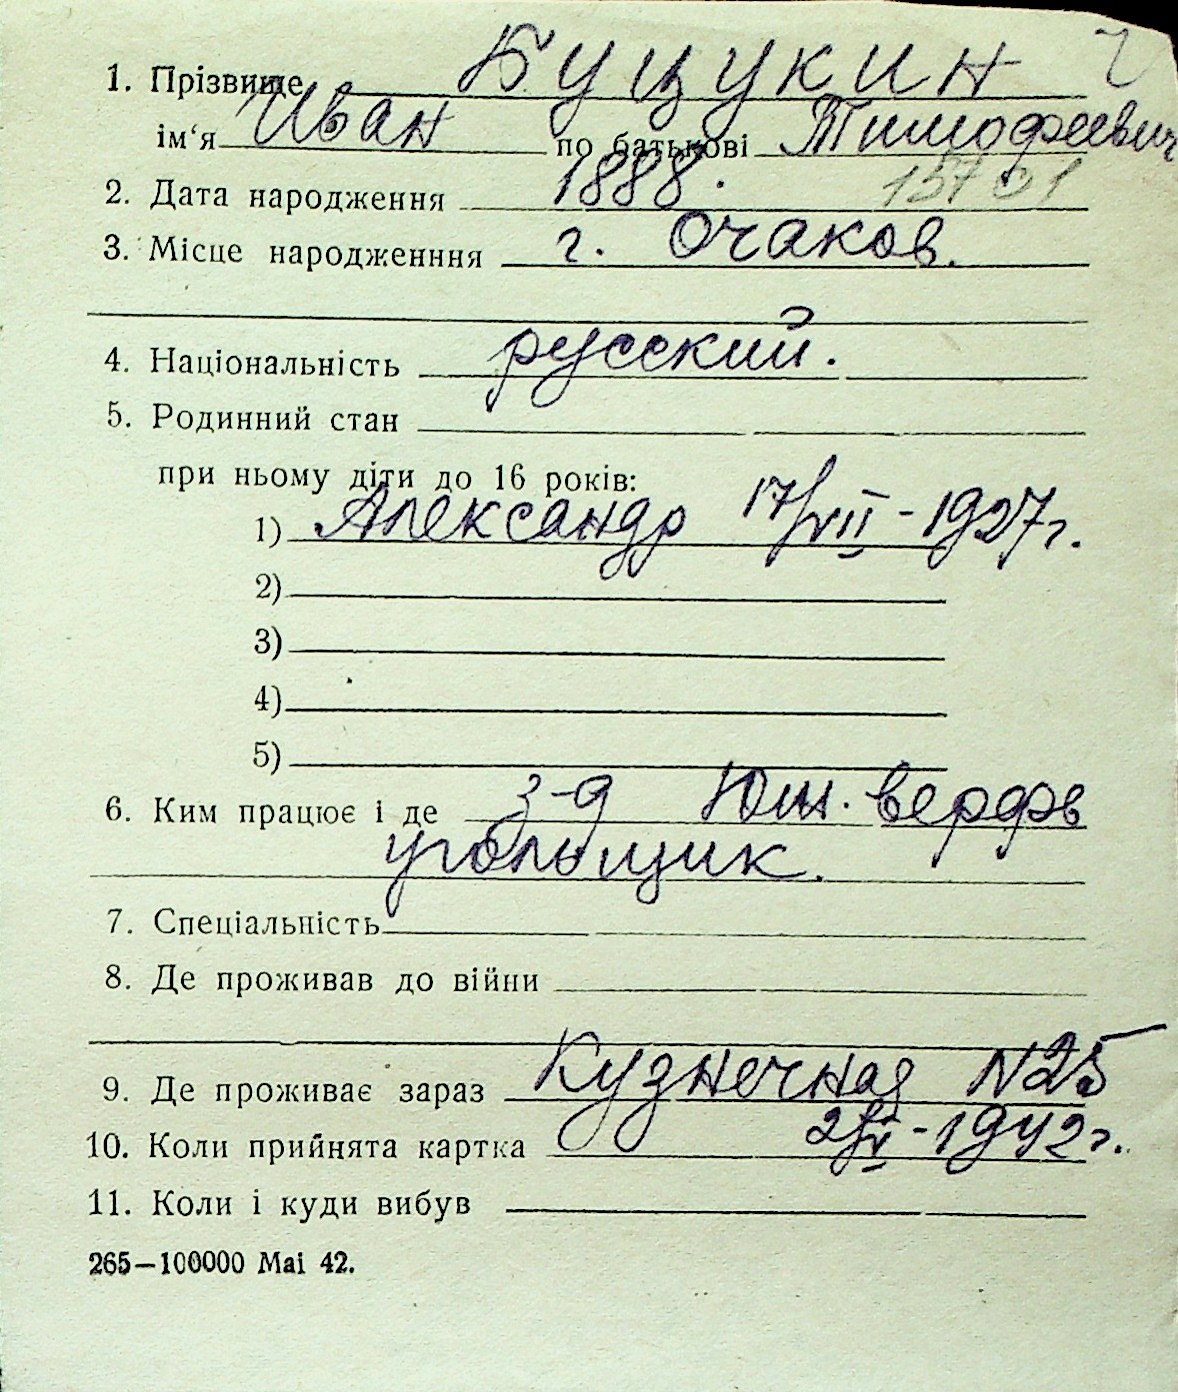 1. Прізвище Буцукин
ім‘я Иван по батькові Тимофеевич
2. Дата народження 1888.
3. Місце народженння г. Очаков.
4. Національність русский.
5. Родинний стан
при ньому діти до 16 років:
1) Александр 17/VII - 1927 г.
2)
3)
4)
5)
6. Ким працює і де з-д Юж. верфь
угольщик.
7. Спеціальність
8. Де проживав до війни
9. Де проживає зараз Кузнечная N25
10. Коли прийнята картка - 1942 г.
11. Коли і куди вибув
265—100000 Mai 42.